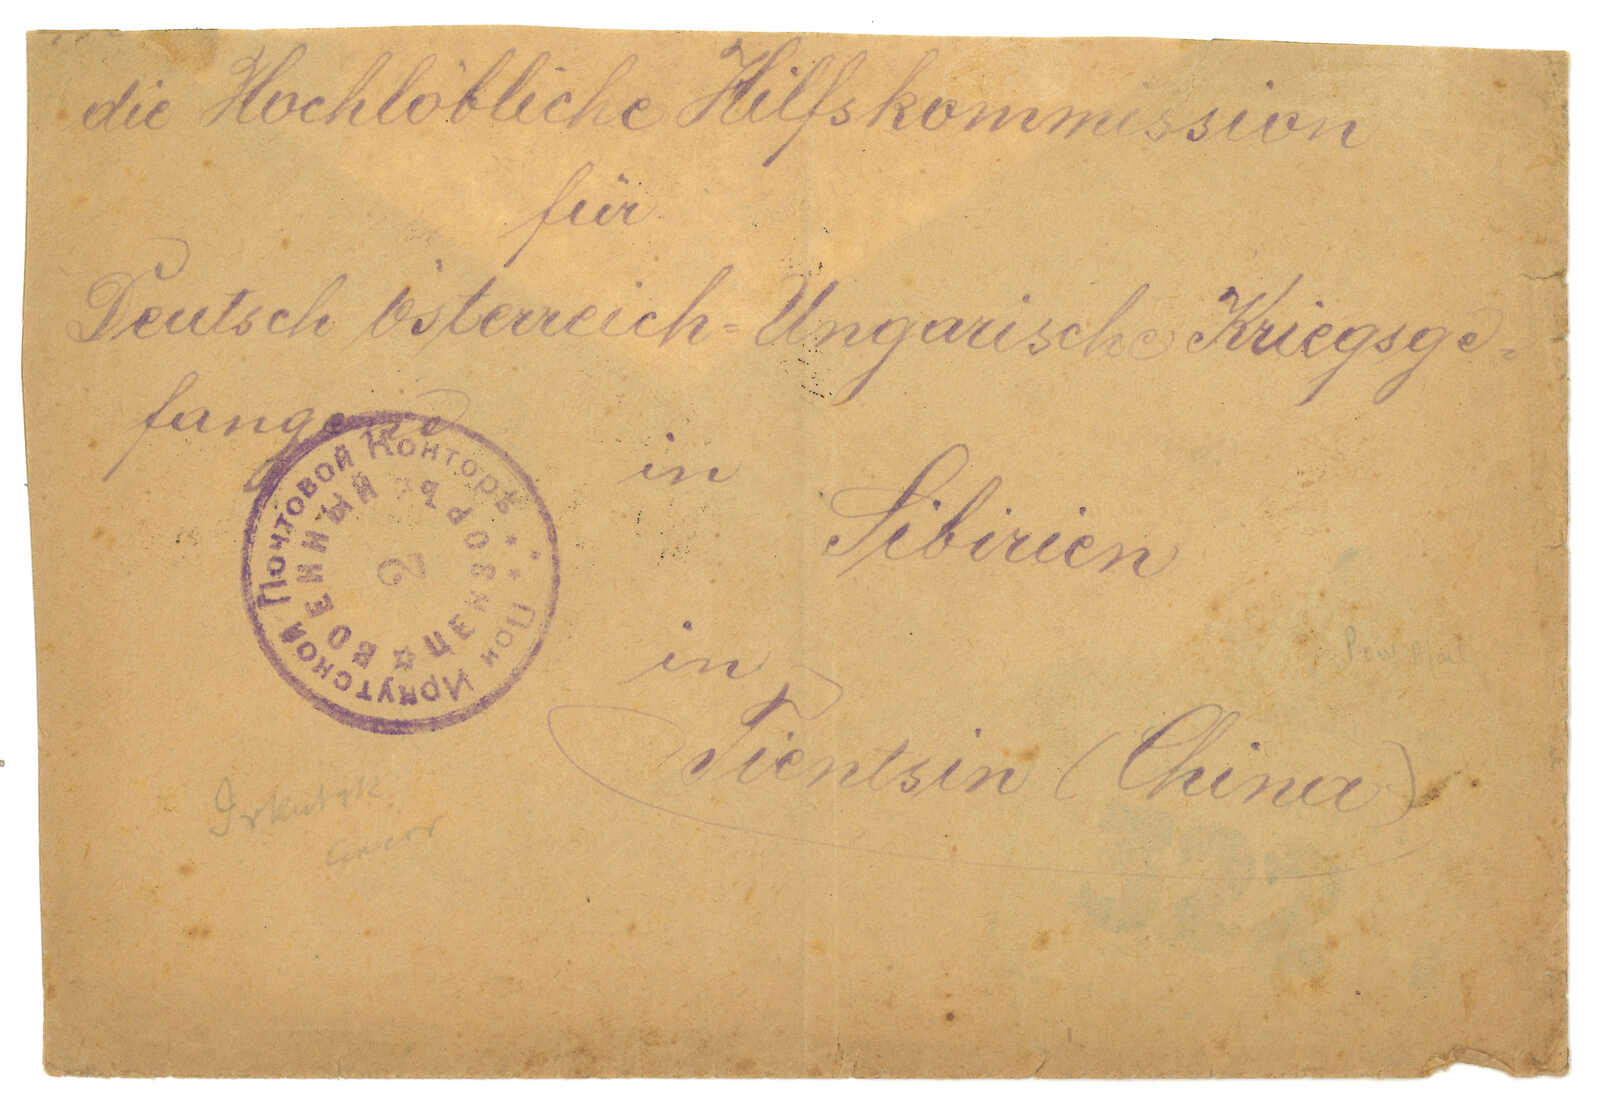 die Hochlöbliche Hilfskommission
für
Deutsch österreich=Ungarische Kriegsge=
fangene
in
Sibirien
in
Tientsin (China)
При Иркутской Почтовой Конторѣ
ВОЕННЫЙ ЦЕНЗОРЪ
2
Irkutsk